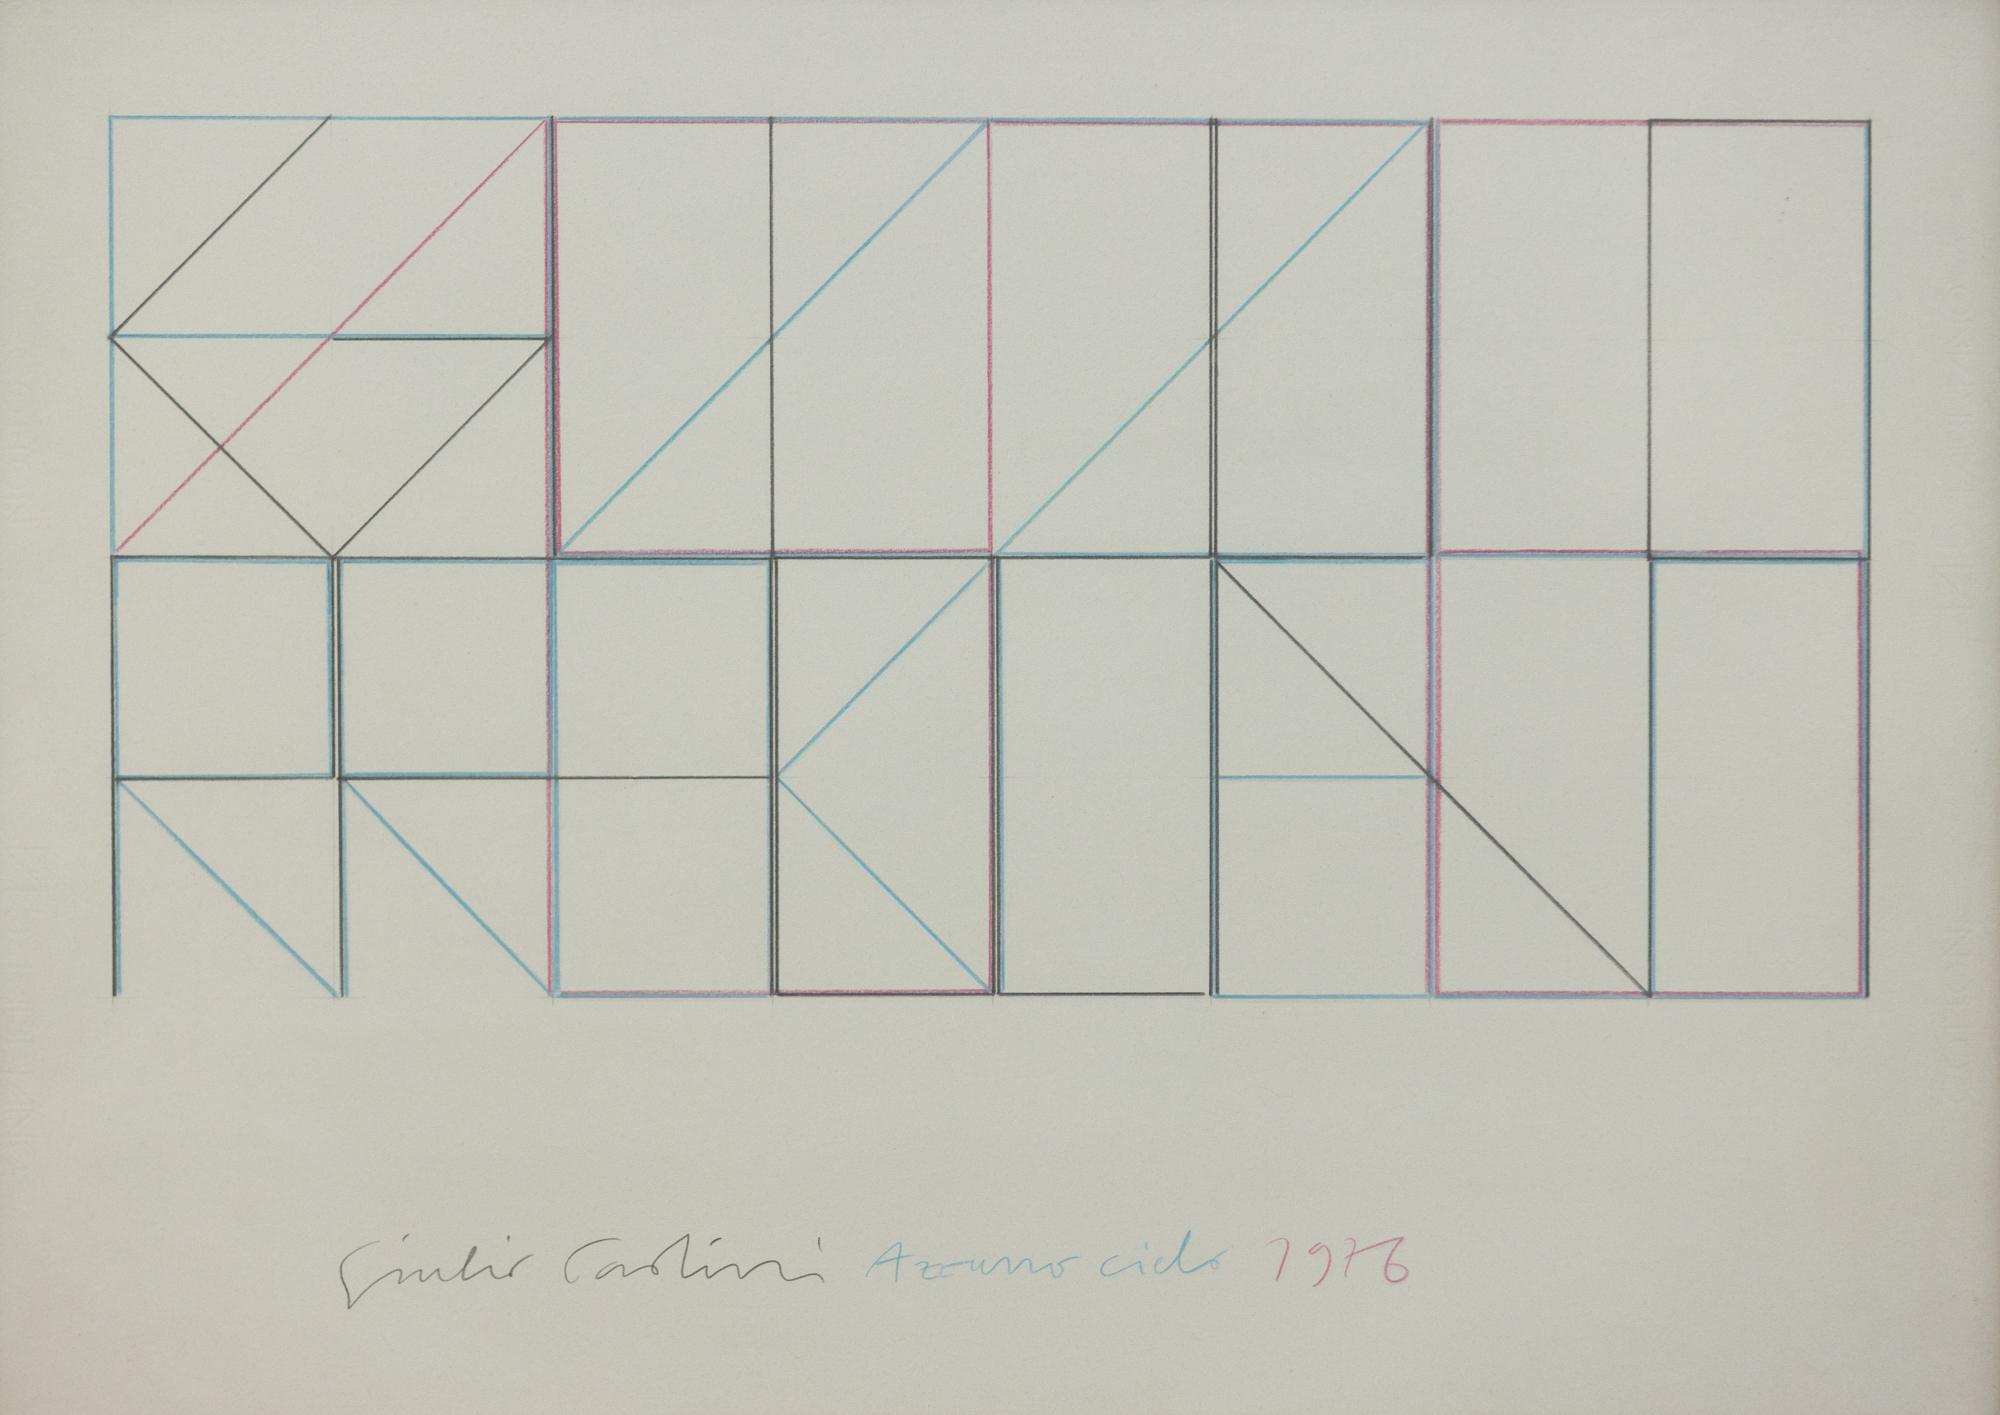 Giulio Paolini Azzurro cielo 1976